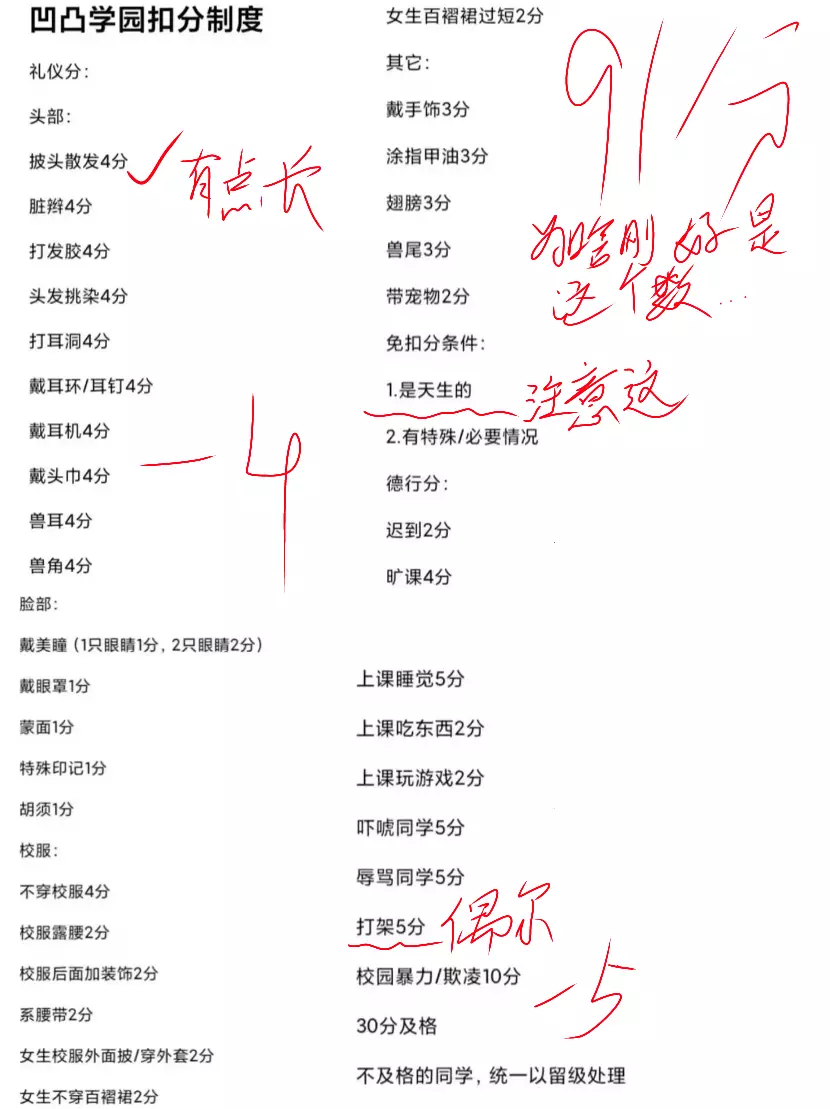 凹凸学园扣分制度
礼仪分：
头部：
披头散发4分 ✓ 有点长
脏辫4分
打发胶4分
头发挑染4分
打耳洞4分
戴耳环/耳钉4分
戴耳机4分
戴头巾4分
-4
兽耳4分
兽角4分
脸部：
戴美瞳（1只眼睛1分，2只眼睛2分）
戴眼罩1分
蒙面1分
特殊印记1分
胡须1分
校服：
不穿校服4分
校服露腰2分
校服后面加装饰2分
系腰带2分
女生校服外面披/穿外套2分
女生不穿百褶裙2分
女生百褶裙过短2分
91分
其它：
戴手饰3分
涂指甲油3分
翅膀3分
为啥刚好是
兽尾3分
这个数...
带宠物2分
免扣分条件：
1.是天生的 注意这
2.有特殊/必要情况
德行分：
迟到2分
旷课4分
上课睡觉5分
上课吃东西2分
上课玩游戏2分
吓唬同学5分
辱骂同学5分
打架5分 偶尔
-5
校园暴力/欺凌10分
30分及格
不及格的同学，统一以留级处理